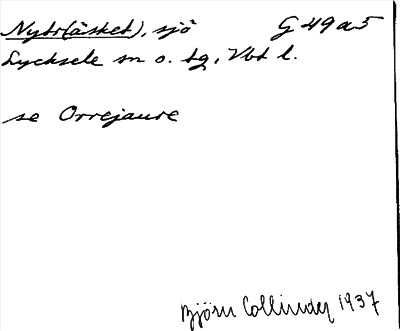 Nybr(äsket), sjö G 49 a5
Lycksele sn o. tg, Vbt l.
se Orrejaure
Björn Collinder 1937